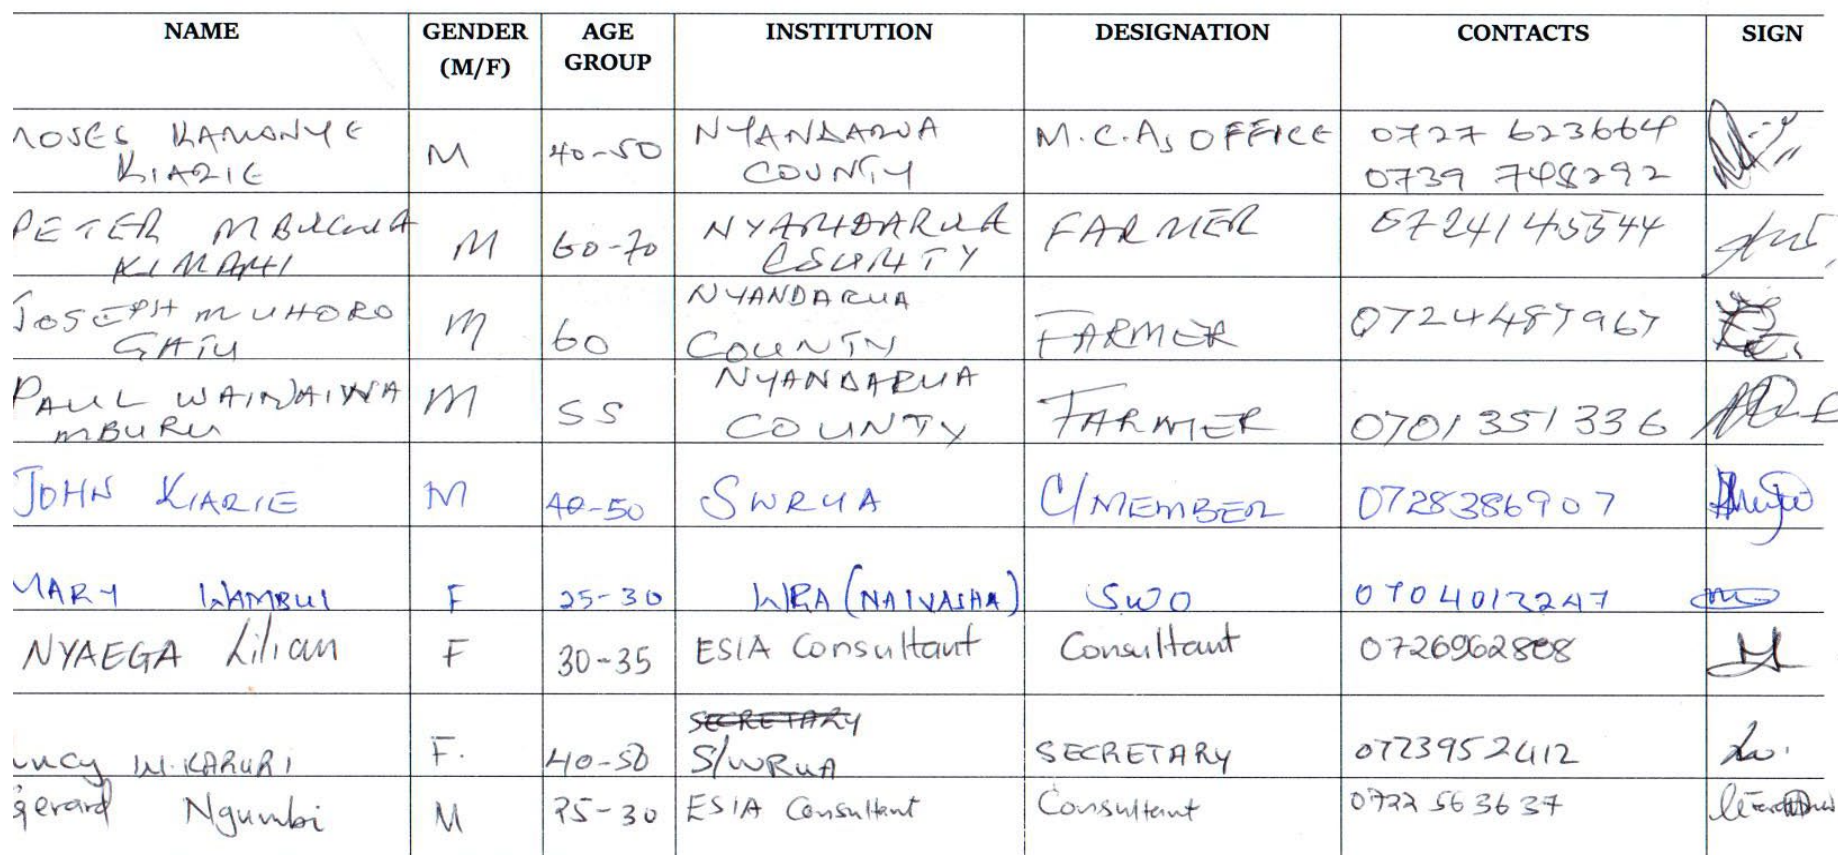 NAME GENDER (M/F) AGE GROUP INSTITUTION DESIGNATION CONTACTS SIGN
MOSES KAMONYE KIARIE M 40-50 NYANDARUA COUNTY M.C.As OFFICE 0727 623664 0739 748292
PETER MBUGUA KIMANI M 60-70 NYANDARUA COUNTY FARMER 0724145544
JOSEPH MUHORO GATU M 60 NYANDARUA COUNTY FARMER 0724487967
PAUL WAINAINA MBURU M 55 NYANDARUA COUNTY FARMER 0701351336
JOHN KIARIE M 40-50 SWRUA C/MEMBER 0728386907
MARY WAMBUI F 25-30 WRA (NAIVASHA) SWO 0704013247
NYAEGA Lilian F 30-35 ESIA Consultant Consultant 0726962808
uncy W. KARURI F. 40-50 SECRETARY S/WRUA SECRETARY 0723952412
gerard Ngumbi M 25-30 ESIA Consultant Consultant 0722 563637